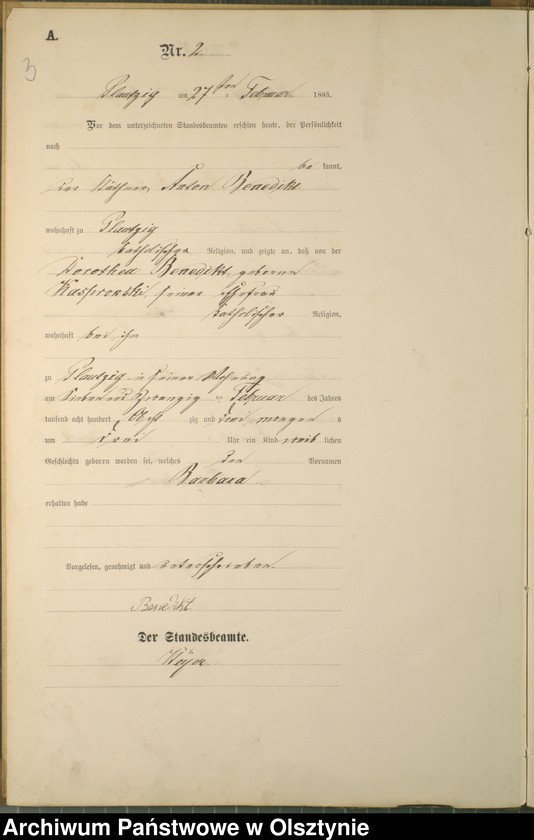 A.
Nr. 2
3
Plautzig am 27ten Februar 1883.
Vor dem unterzeichneten Standesbeamten erschien heute, der Persönlichkeit
nach
be kannt,
der Käthner Anton Benedikt
wohnhaft zu Plautzig
katholischer Religion, und zeigte an, daß von der
Dorothea Benedikt, geborene
Kasprowski, seiner Ehefrau
katholischer Religion,
wohnhaft bei ihm
zu Plautzig in seiner Wohnung
am sieben und zwanzig ten Februar des Jahres
tausend acht hundert acht zig und drei morgen s
um drei Uhr ein Kind weib lichen
Geschlechts geboren worden sei, welches den Vornamen
Barbara
erhalten habe
Vorgelesen, genehmigt und unterschrieben.
Benedikt
Der Standesbeamte.
Archiwum Państwowe w Olsztynie